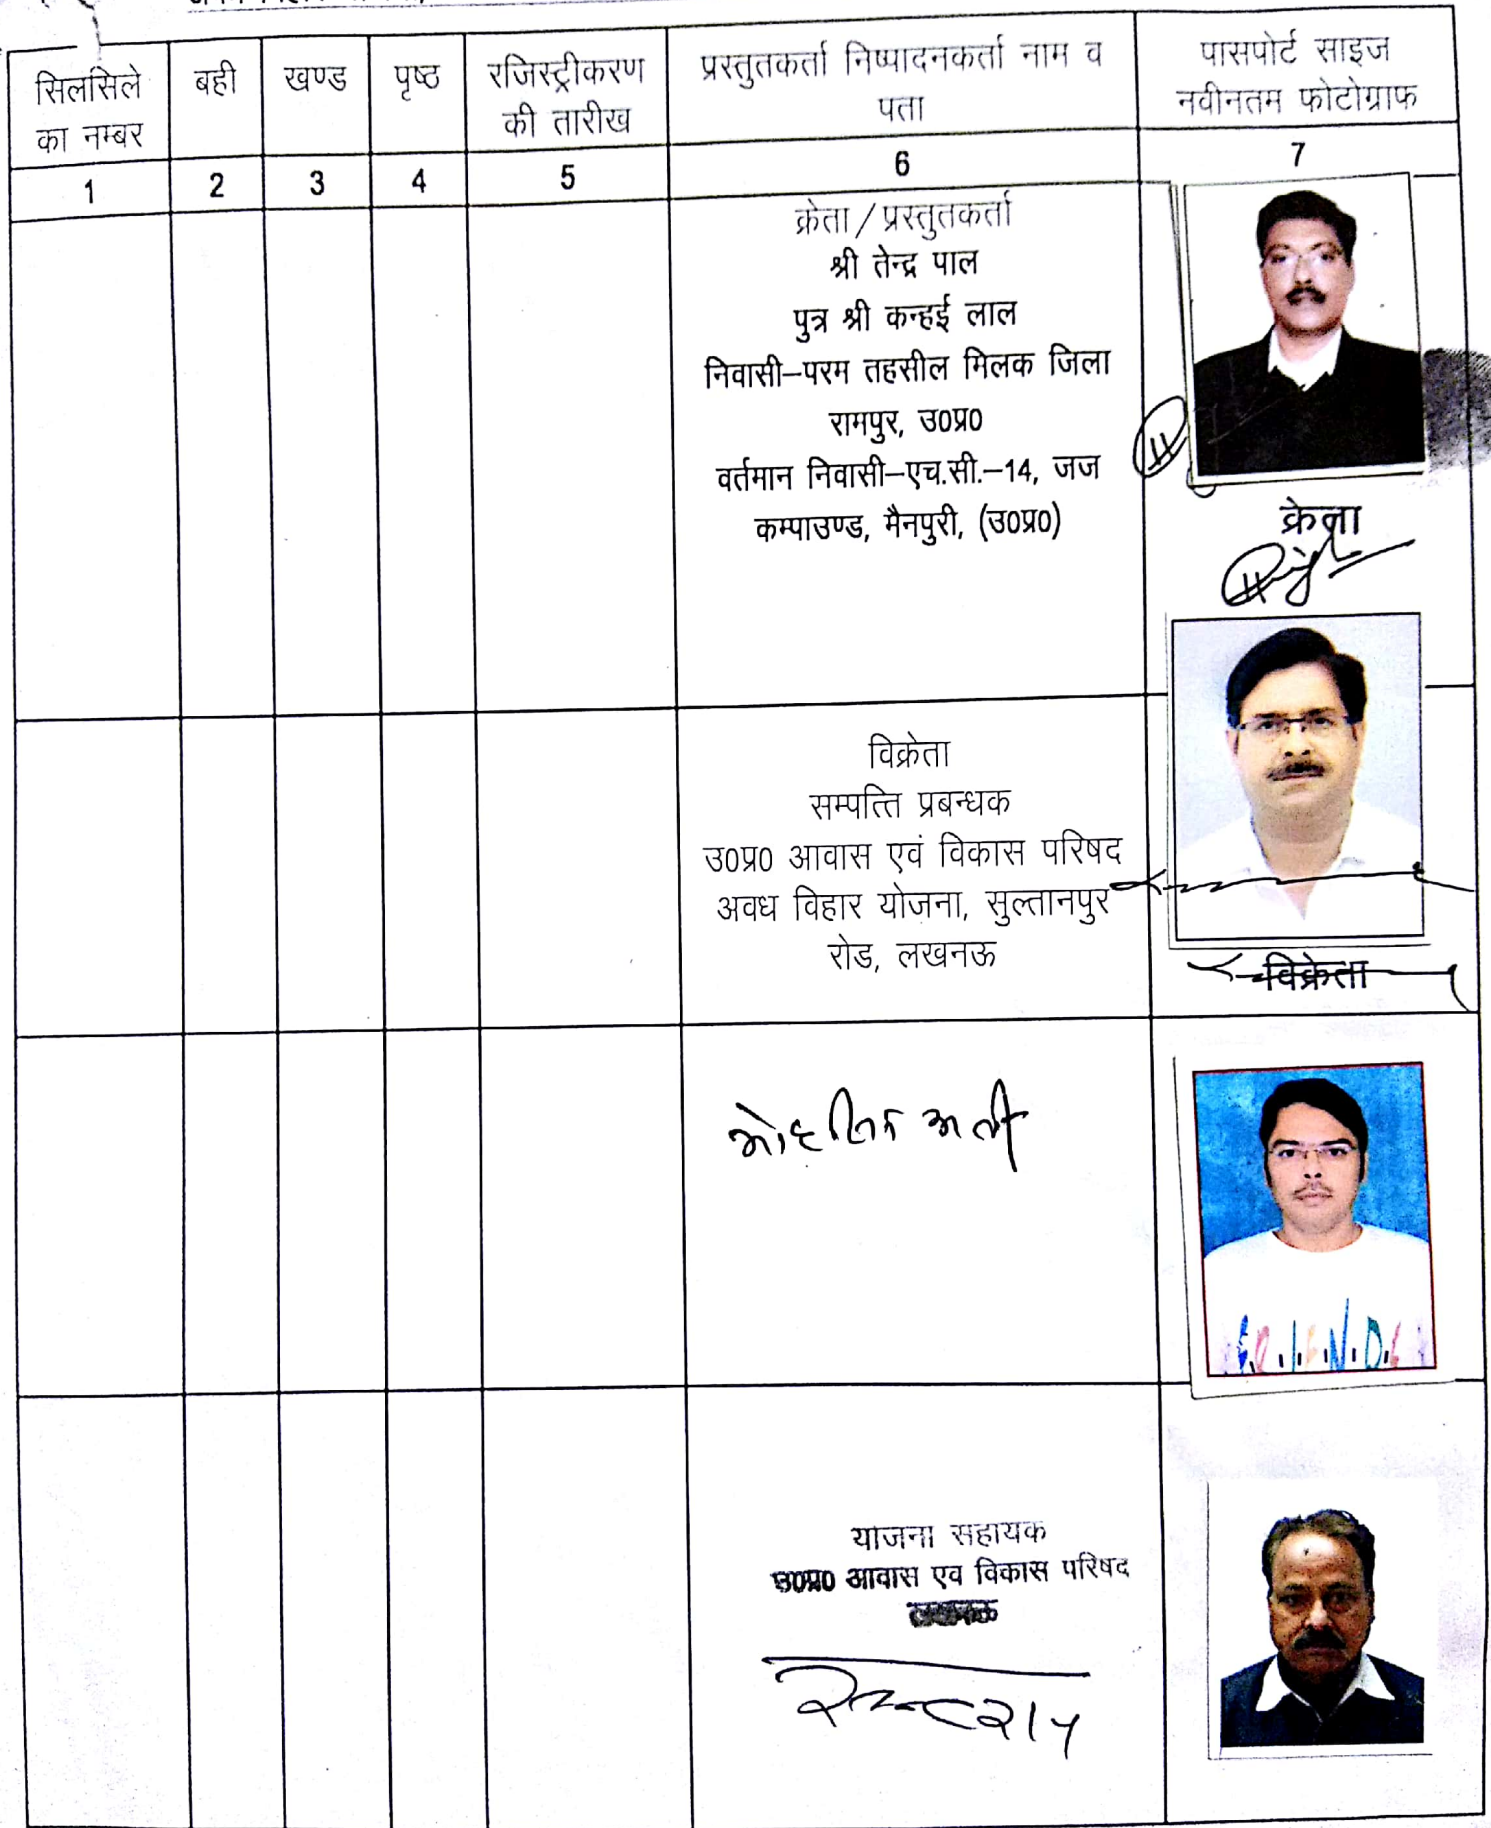 सिलसिले का नम्बर
बही
खण्ड
पृष्ठ
रजिस्ट्रीकरण की तारीख
प्रस्तुतकर्ता निष्पादनकर्ता नाम व पता
पासपोर्ट साइज नवीनतम फोटोग्राफ
1 2 3 4 5 6 7
क्रेता/प्रस्तुतकर्ता
श्री तेन्द्र पाल
पुत्र श्री कन्हई लाल
निवासी–परम तहसील मिलक जिला
रामपुर, उ0प्र0
वर्तमान निवासी–एच.सी.–14, जज
कम्पाउण्ड, मैनपुरी, (उ0प्र0)
क्रेता
विक्रेता
सम्पत्ति प्रबन्धक
उ0प्र0 आवास एवं विकास परिषद
अवध विहार योजना, सुल्तानपुर
रोड, लखनऊ
विक्रेता
अली
योजना सहायक
उ0प्र0 आवास एव विकास परिषद